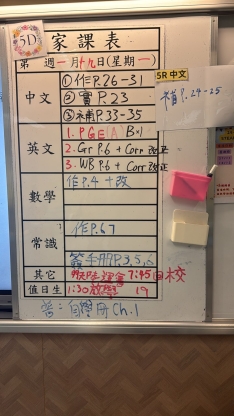 5D
家課表
第 週 一月十九日(星期一)
中文
①作P.26-31
②寶P.23
③補P.33-35
5R 中文
補P.24-25
英文
1. PGE(A) B1
2. Gr P.6 + Corr 改正
3. WB P.6 + Corr 改正
數學
作P.4 + 改
常識
作P.67
簽手冊P.3,5,6
其它
7:45回校
值日生
1:30放學 19
Ch.1